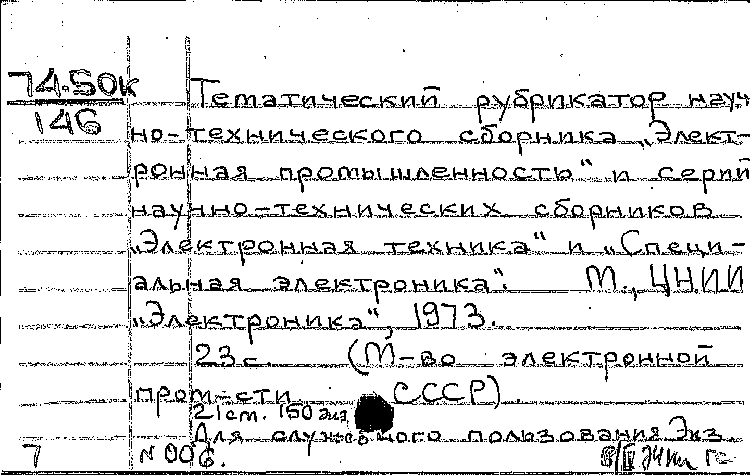 74.50к
146
Тематический рубрикатор науч
но-технического сборника „Элект-
ронная промышленность“ и серий
научно-технических сборников
„Электронная техника“ и „Специ-
альная электроника“. М., ЦНИИ
„Электроника“, 1973.
23 с. (М-во электронной
пром-сти СССР).
21 cm. 150 экз
Для служебного пользования Экз
7 N 006.